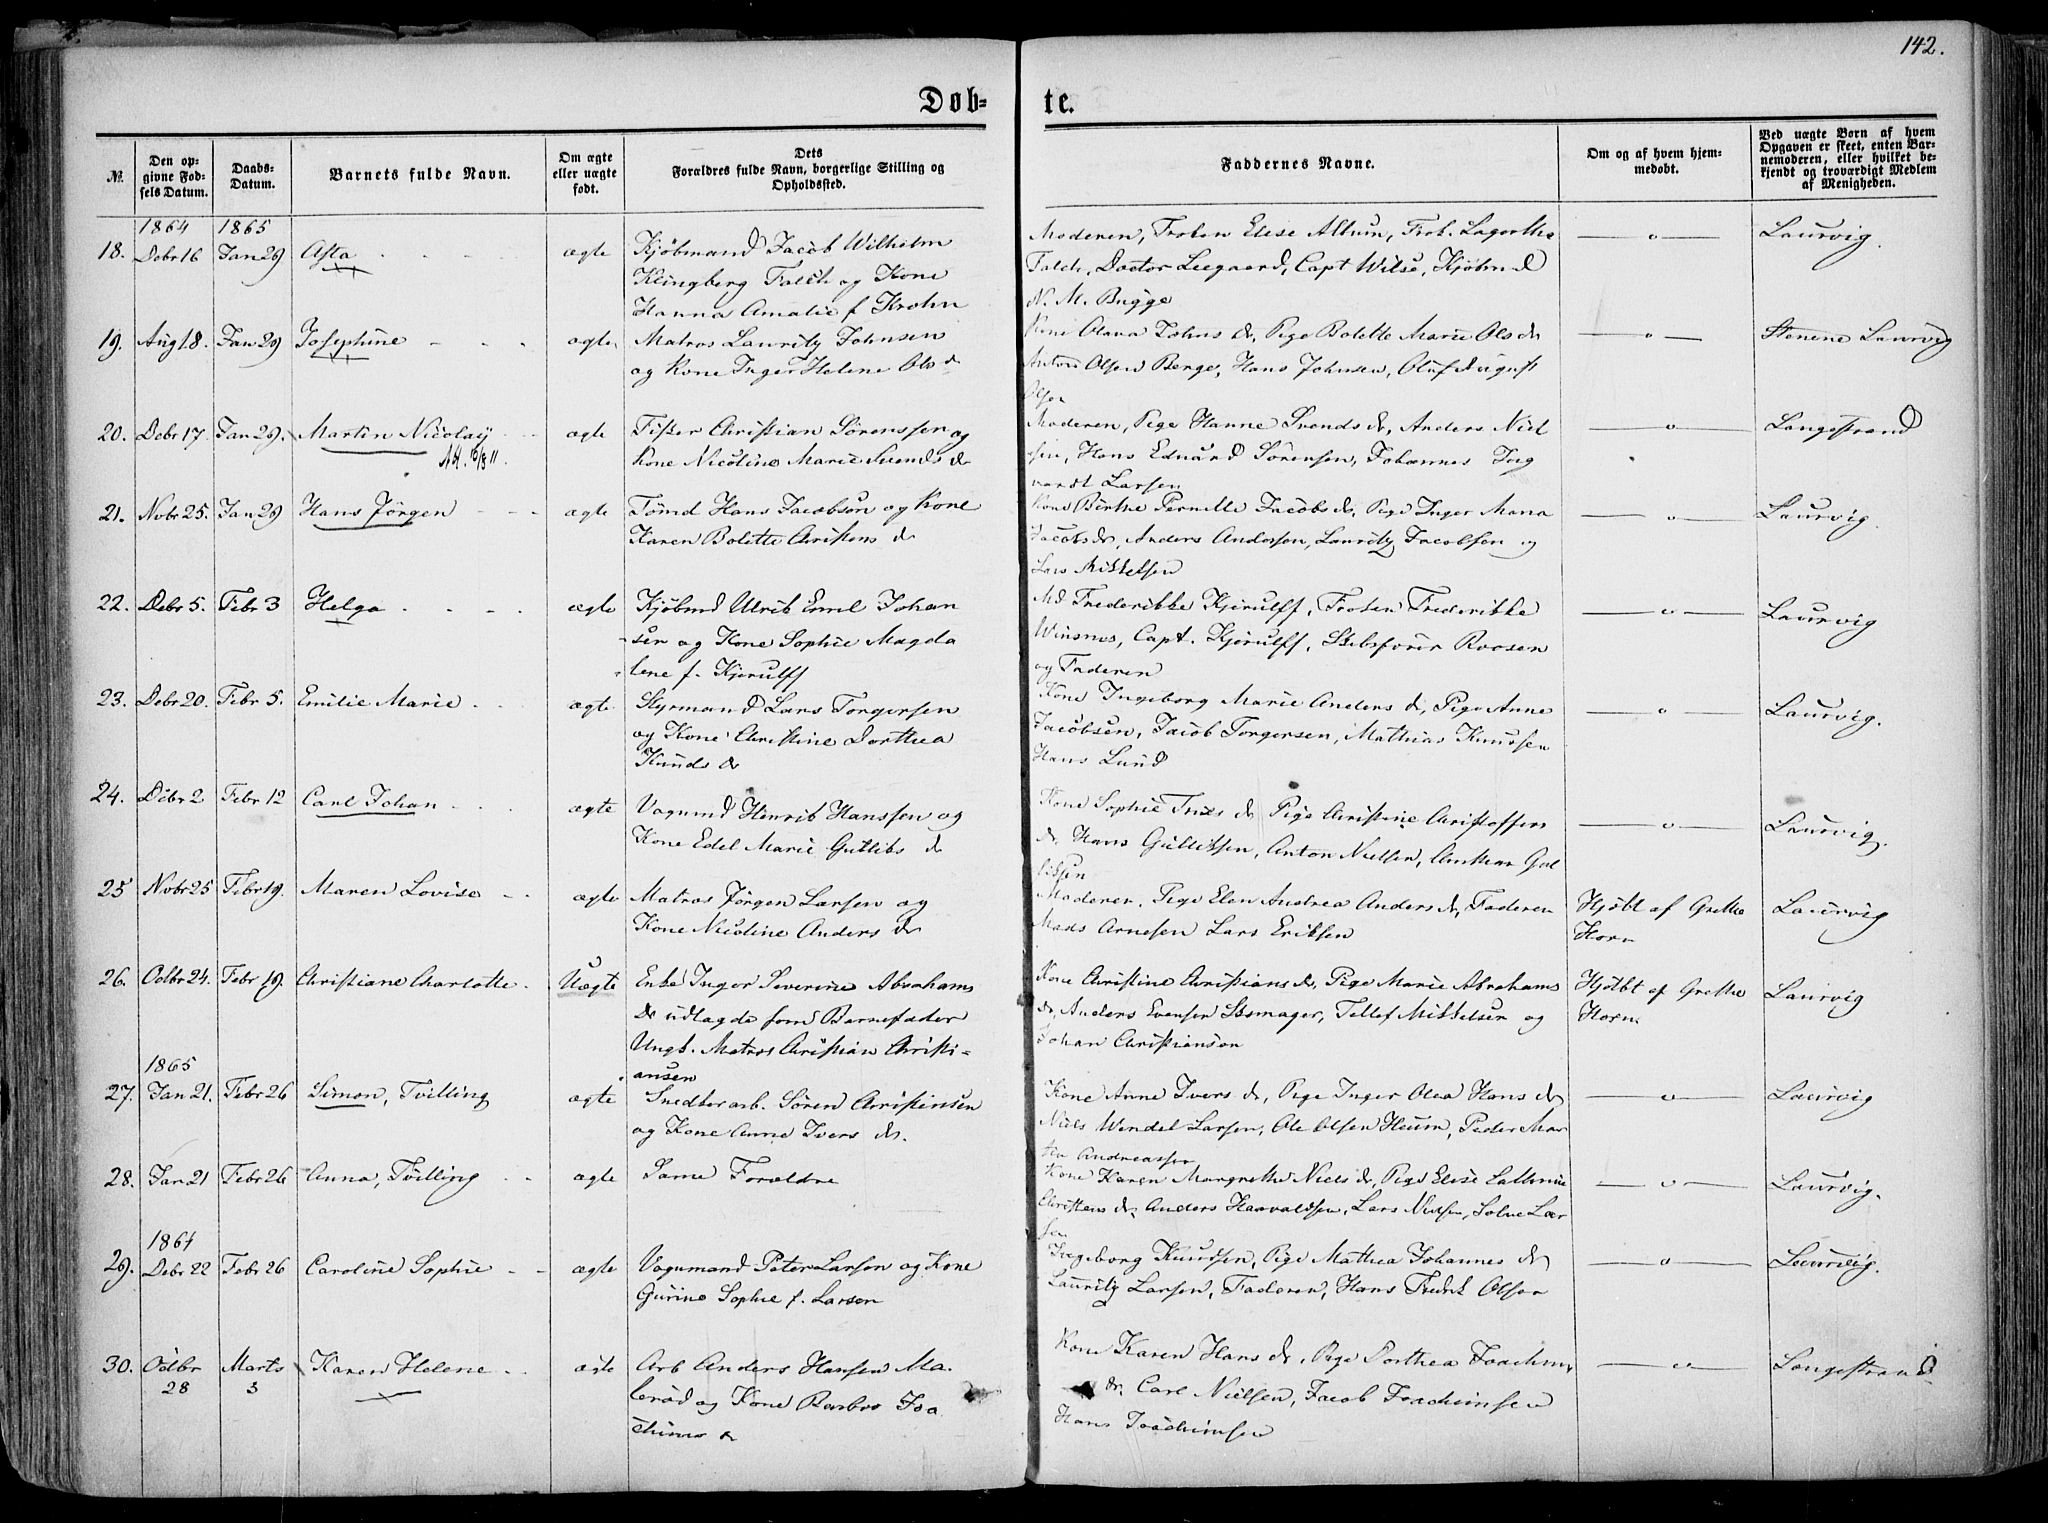 142.
Døb-
te.
№.
Den op-
givne Fød-
sels Datum.
Daabs-
Datum.
Barnets fulde Navn.
Om ægte
eller uægte
født.
Dets
Forældres fulde Navn, borgerlige Stilling og
Opholdssted.
Faddernes Navne.
Om og af hvem hjem-
medøbt.
Ved uægte Børn af hvem
Opgaven er skeet, enten Bar-
nemoderen, eller hvilket be-
kjendt og troværdigt Medlem
af Menigheden.
1864 1865
18. Debr 16 Jan 29 Asta ægte Kjöbmand Jacob Wilhelm
Klingberg Falch og Kone
Hanna Amalie f Krohn
Moderen, Froken Elise Altum, Frök. Lagertha
Falch, Doctor Leegaard, Capt Wilse, Kjöbmd
N. M. Bugge
Laurvig.
19. Aug 18. Jan 29 Josephine ægte Matros Lauritz Johnsen
og Kone Inger Helene Ols d
Kone Olava Johns dr, Pige Bolette Marie Ols dr
Anton Olsen Berge, Hans Johnsen, Oluf August
Olsen
Stenene Laurvig
20. Debr 17. Jan 29. Martin Nicolay ægte Fisker Christian Sörenssen og
Kone Nicoline Marie Svends dr
Moderen, Pige Hanne Svends dr, Anders Niel
sen, Hans Eduard Sörensen, Johannes Ing
vardt Larsen
Langestrand
21. Nobr 25. Jan 29 Hans Jörgen ægte Tömd Hans Jacobsen og Kone
Karen Bolette Christens dr
Kone Birthe Pernille Jacobs dr, Pige Inger Maria
Jacobs dr, Anders Andersen, Lauritz Jacobsen og
Lars Mikkelsen
Laurvig.
22. Debr 5. Febr 3 Helga ægte Kjöbmd Ulrik Emil Johan
sen og Kone Sophie Magda
lene f. Kjerulff
Md Frederikke Kjerulff, Froken Frederikke
Winsnes, Capt. Kjerulff, Skibsförer Roosen
og Faderen
Laurvig
23. Debr 20. Febr 5. Emilie Marie ægte Styrmand Lars Torgersen
og Kone Christine Dorthea
Knuds dr
Kone Ingeborg Marie Anders dr, Pige Anne
Jacobsen, Jacob Torgersen, Mathias Knudsen
Hans Lund
Laurvig.
24. Debr 2 Febr 12 Carl Johan ægte Vognmd Henrik Hanssen og
Kone Edel Marie Gutliks dr
Kone Sophie dr Pige Christine Christoffers
dr, Hans Gullitsen, Anton Nielsen,
Laurvig.
25 Nobr 25 Febr 19. Maren Lovise ægte Matros Jörgen Larsen og
Kone Nicoline Anders dr
Moderen, Pige Elen Andrea Anders dr, Faderen
Mads Arnesen Lars Eriksen
Hjdbt af Grethe
Horn
Laurvig
26. Octbr 24. Febr 19. Christiane Charlotte Uægte Enke Inger Severine Abrahams
dr udlagde som Barnefader
Ungk. Matros Christian Christi-
ansen
Kone Christine Christians dr, Pige Marie Abrahams
dr, Anders Evensen Skomager, Tellef Mikkelsen og
Johan Christiansen
Hjdbt af Grethe
Horn
Laurvig
1865
27. Jan 21. Febr 26 Simon, Tvilling ægte Snedkerarb. Sören Christensen
og Kone Anne Ivers dr.
Kone Anne Ivers dr, Pige Inger Olea Hans dr
Niels Wendel Larsen, Ole Olsen Heum, Peder Mar
Andreassen
Laurvig
28. Jan 21 Febr 26 Anna, Tvilling ægte Same Forældre
Kone Karen Margrethe Niels dr, Pige Elise Cathrine
Christens dr, Anders Haavaldsen, Lars Nielsen, Solve Lar
sen
Laurvig.
1864
29. Debr 22 Febr 26 Caroline Sophie ægte Vognmand Peter Larsen og Kone
Gurine Sophie f. Larsen
Ingeborg Knudsen, Pige Mathea Johannes dr
Lauritz Larsen, Faderen, Hans Fredrk Olsen
Laurvig.
30. Octbr
28 Marts
3 Karen Helene ægte Arb Anders Hansen Ma-
leröd og Kone Barbro Joa
chims dr
Kone Karen Hans dr, Pige Dorthea Joachim
dr, Carl Nielsen, Jacob Joachimsen
Hans Joachimsen
Langestrand